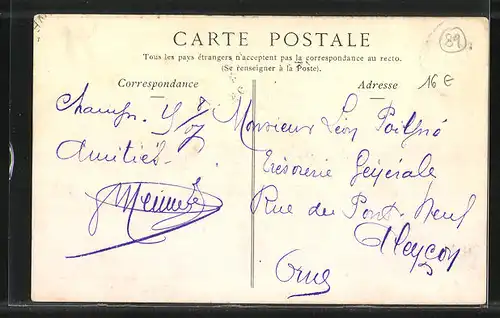 CARTE POSTALE
Tous les pays étrangers n'acceptent pas la correspondance au recto.
(Se renseigner à la Poste).
89
Correspondance
Adresse
16 €
Amitiés
Monsieur Léon
Trésorerie Générale
Rue du Pont-Neuf
Alençon
Orne